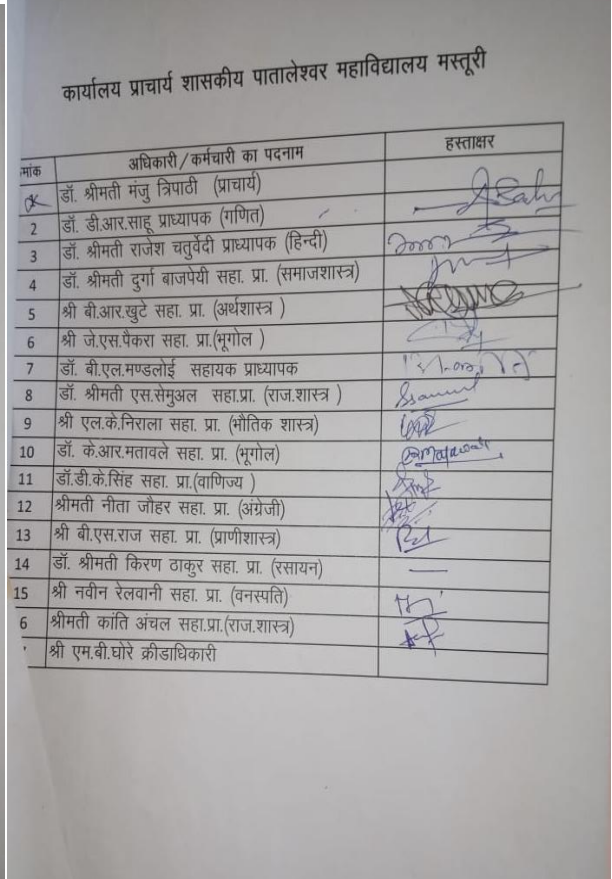 कार्यालय प्राचार्य शासकीय पातालेश्वर महाविद्यालय मस्तूरी
मांक अधिकारी/कर्मचारी का पदनाम हस्ताक्षर
डॉ. श्रीमती मंजु त्रिपाठी (प्राचार्य)
2 डॉ. डी.आर.साहू प्राध्यापक (गणित)
3 डॉ. श्रीमती राजेश चतुर्वेदी प्राध्यापक (हिन्दी)
4 डॉ. श्रीमती दुर्गा बाजपेयी सहा. प्रा. (समाजशास्त्र)
5 श्री बी.आर.खुटे सहा. प्रा. (अर्थशास्त्र )
6 श्री जे.एस.पैकरा सहा. प्रा.(भूगोल )
7 डॉ. बी.एल.मण्डलोई सहायक प्राध्यापक
8 डॉ. श्रीमती एस.सेमुअल सहा.प्रा. (राज.शास्त्र )
9 श्री एल.के.निराला सहा. प्रा. (भौतिक शास्त्र)
10 डॉ. के.आर.मतावले सहा. प्रा. (भूगोल)
11 डॉ.डी.के.सिंह सहा. प्रा.(वाणिज्य )
12 श्रीमती नीता जौहर सहा. प्रा. (अंग्रेजी)
13 श्री बी.एस.राज सहा. प्रा. (प्राणीशास्त्र)
14 डॉ. श्रीमती किरण ठाकुर सहा. प्रा. (रसायन)
15 श्री नवीन रेलवानी सहा. प्रा. (वनस्पति)
6 श्रीमती कांति अंचल सहा.प्रा.(राज.शास्त्र)
श्री एम.बी.घोरे क्रीडाधिकारी